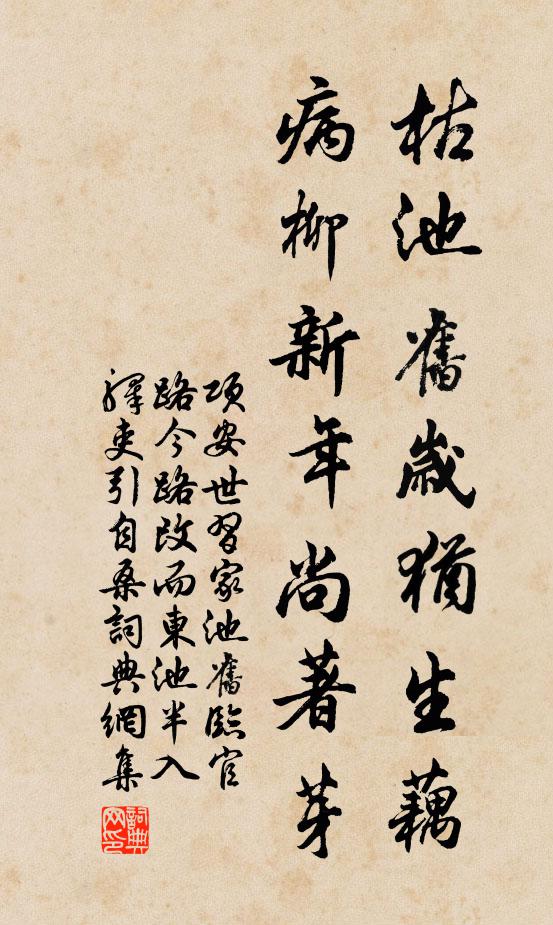 枯池舊歲猶生藕
病柳新年尚著芽
項安世習家池舊臨官
路今路改而東池半入
驛吏引自桑詞典網集
詞典
网印